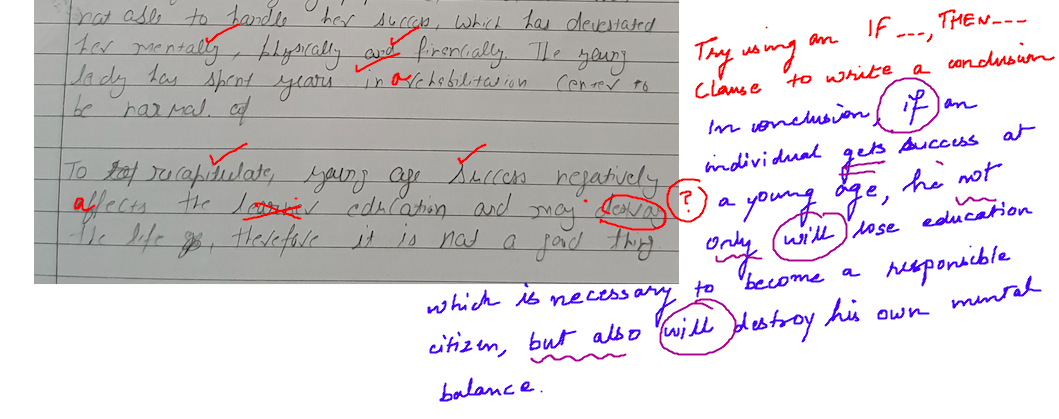 not able to handle her success, which has devestated
her mentally, physically and finencially. The young
lady has spent years in a rehabilitation center to
be normal. of
To recapitulate, young age success negatively
affects the education and may
the life, therefore it is not a good thing.
?
Try using an IF ---, THEN---
Clause to write a conclusion
In conclusion, if an
individual gets success at
a young age, he not
only will lose education
which is necessary to become a responsible
citizen, but also will destroy his own mental
balance.